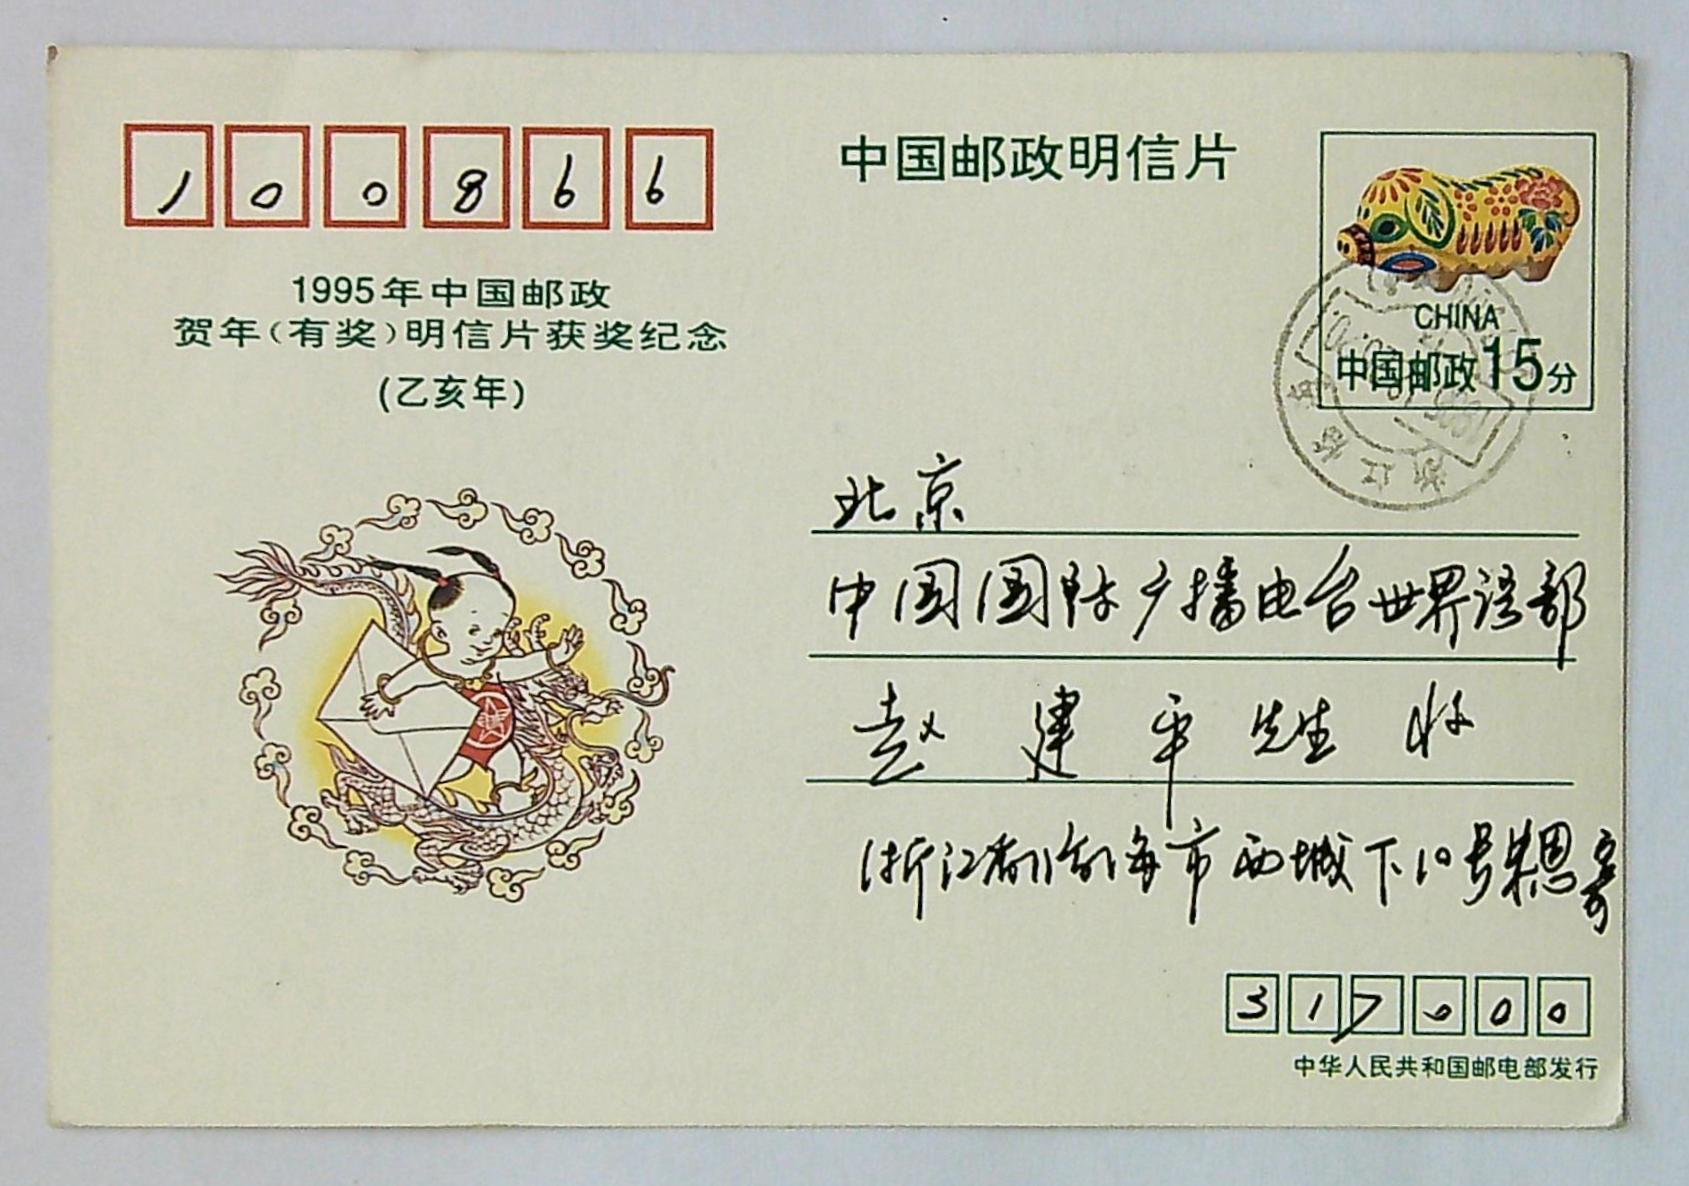 100866
中国邮政明信片
1995年中国邮政
贺年(有奖)明信片获奖纪念
(乙亥年)
CHINA
中国邮政15分
北京
中国国际广播电台世界语部
赵建平先生收
浙江省临海市西城下10号朱恩寄
317000
中华人民共和国邮电部发行
浙江